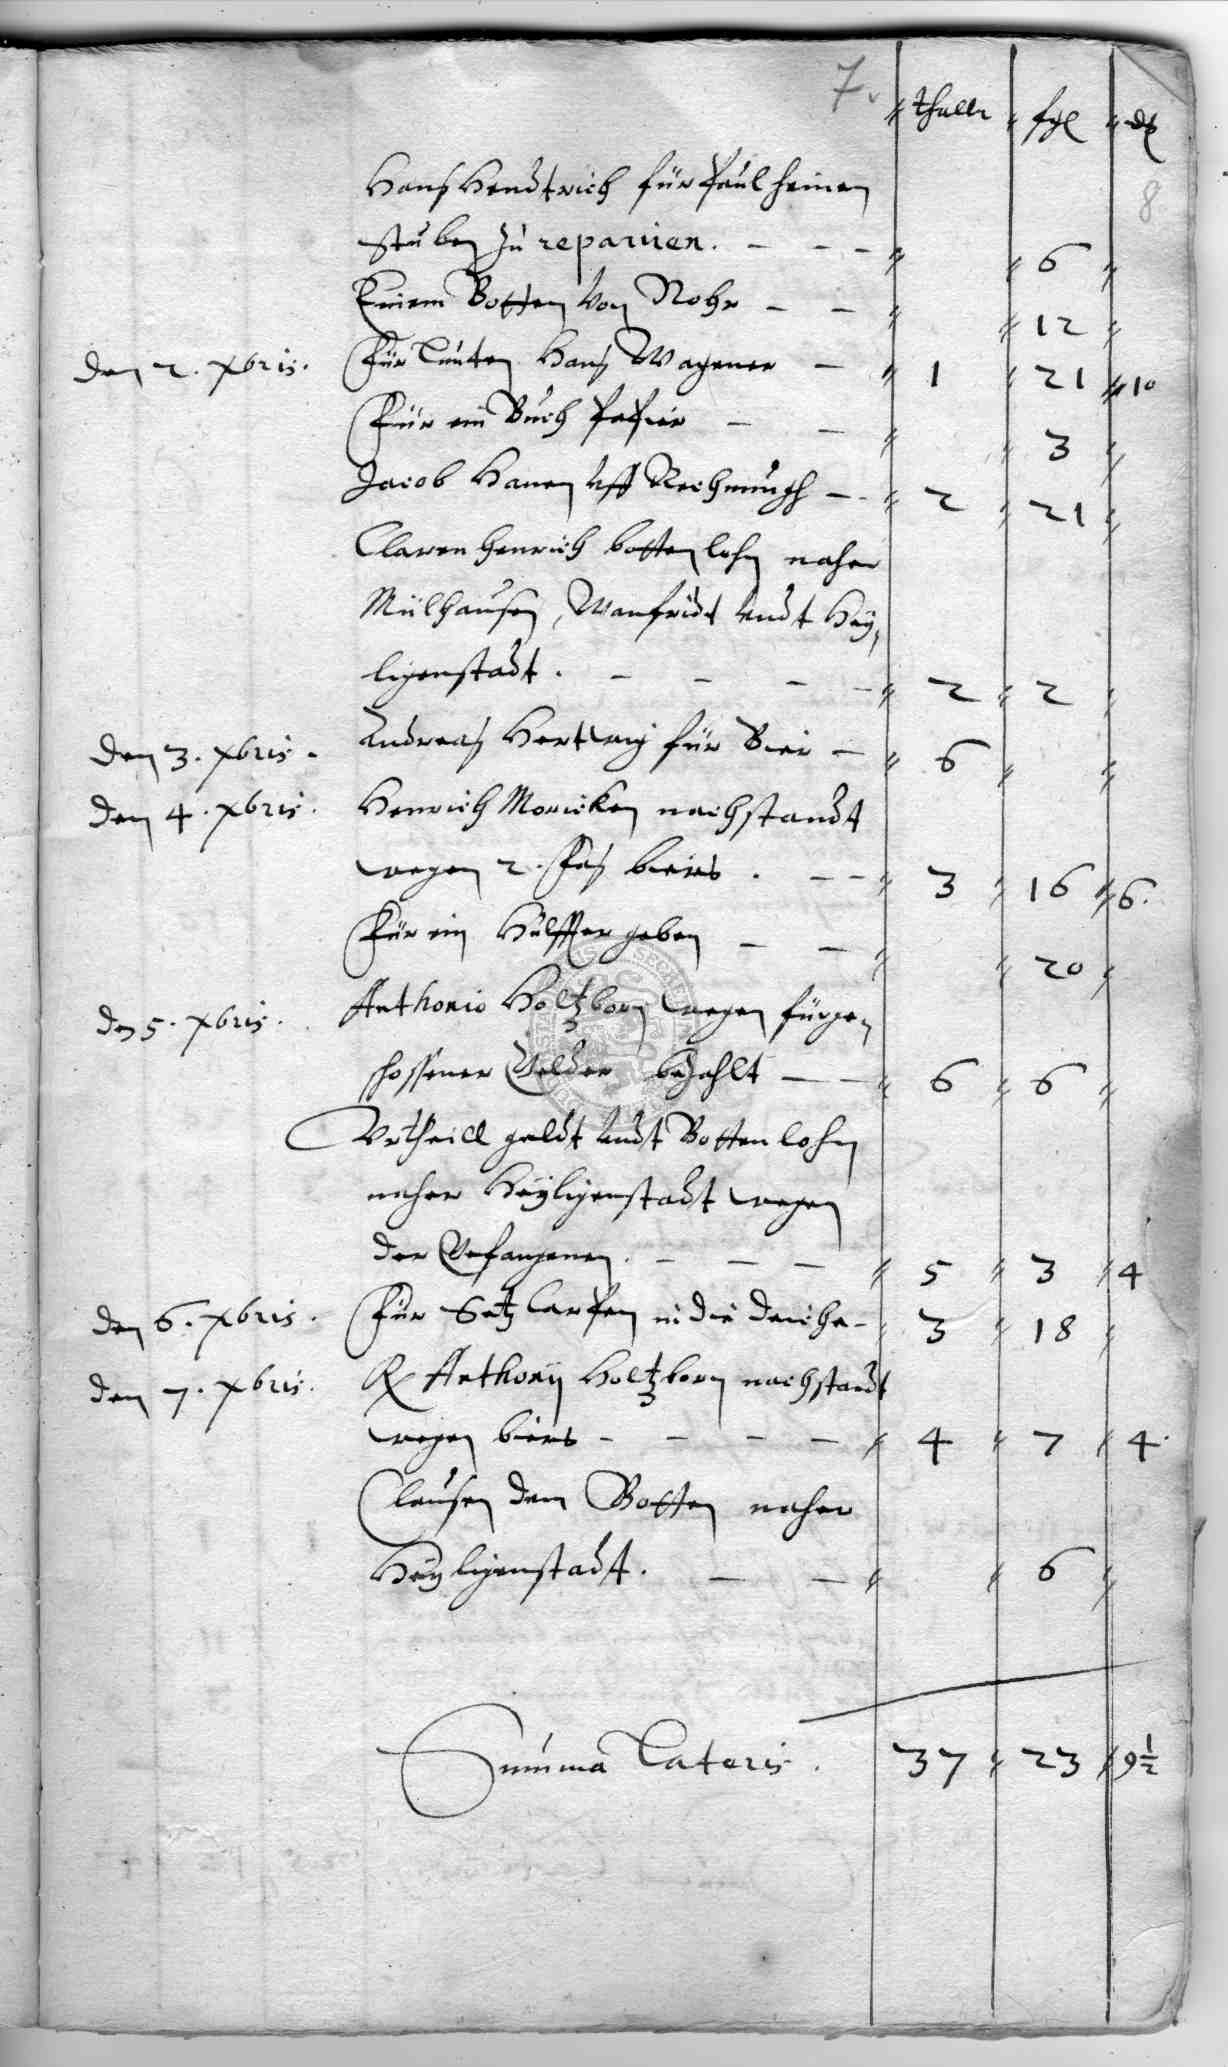 7. thaler sgl dß
8
Hans Hendtrich für Paul seinen
Stuben zu repariren. — — — 6
Einem Botten von Rohr — — 12
den 2. xbris. Für Hans Wagener — 1 21 10
Für ein Buch Papier — — 3
Jacob Hanen uff Rechnungh — 2 21
Claren Henrich bottenlohn naher
Mülhausen, Wanfridt undt Hey,
ligenstadt. — — — — 2 2
den 3. xbris. Andreas Hertwig für Bier — 6
den 4. xbris. Henrich Moricken nachstandt
wegen 2. Fas biers. — — 3 16 6.
Für ein Hülffer geben — — 20
den 5. xbris. Anthonio Holtzborn wegen fürge
schossener Gelder bezahlt — — 6 6
Urtheill geldt undt Bottenlohn
naher Heyligenstadt wegen
der Gefangenen. — — — 5 3 4
den 6. xbris. Für Setz Carpen in die deiche — 3 18
den 7. xbris. Anthonij Holtzborn nachstandt
wegen biers — — — — 4 7 4.
Clausen dem Botten naher
Heyligenstadt. — — 6
Summa Lateris. 37 23 9½